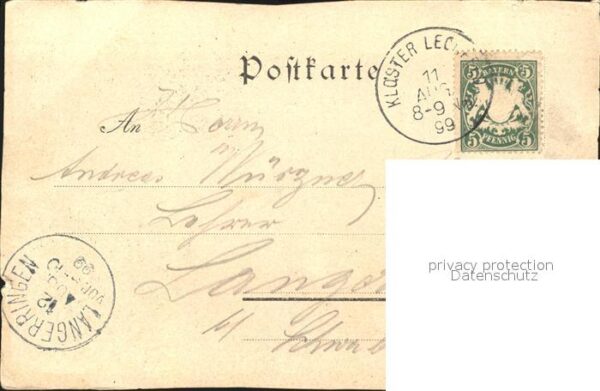 Postkarte
KLOSTER LECH
11
AUG
8-9 V
99
5 BAYERN 5
5 PFENNIG 5
An Herrn
Andreas
Lehrer
Lange
LANGERRINGEN
12
AUG
VORM
99
privacy protection
Datenschutz